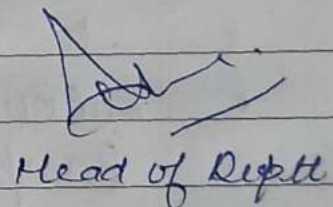 Head of Deptt